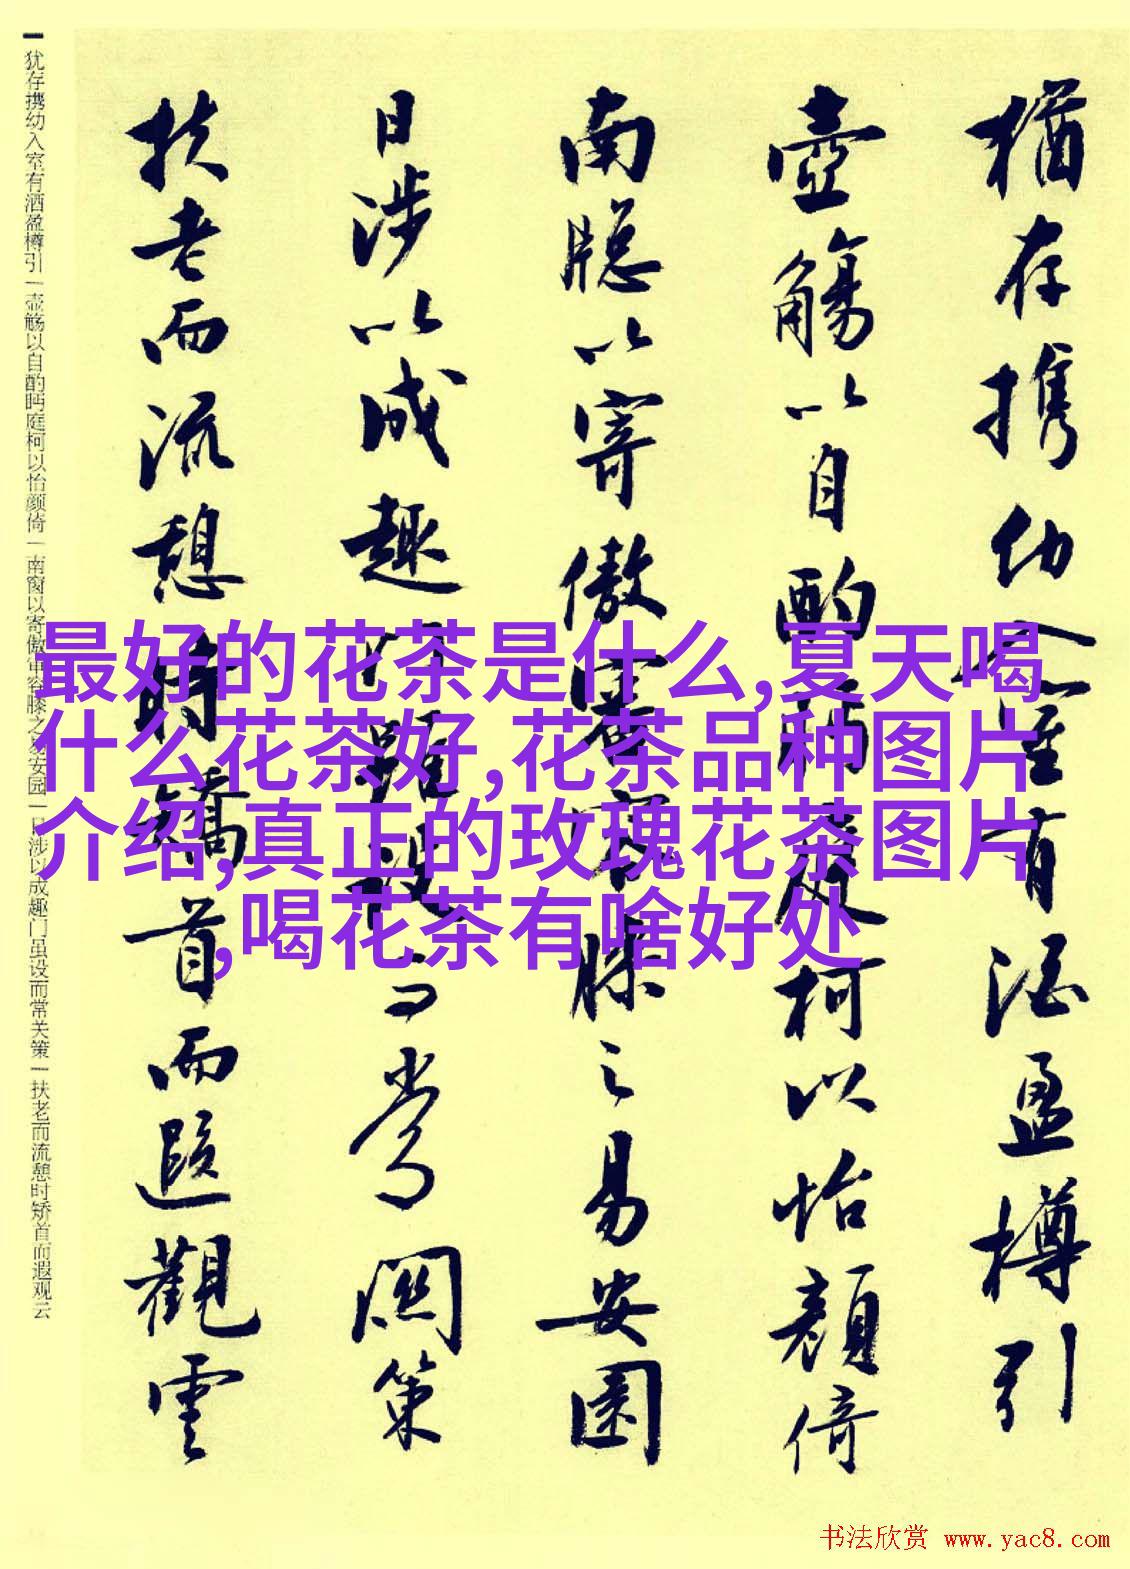 犹存携幼入室有酒盈樽引
壶觞以自酌眄庭柯以怡颜倚
南窗以寄傲审容膝之易安园
日涉以成趣门虽设而常关策
扶老而流憩时矫首而遐观云
猶存携幼入室有酒盈樽引
壺觴以自酌眄庭柯以怡顔倚
南牕以寄傲審容膝之易安園
日涉以成趣門雖設而常關策
扶老而流憩時矯首而遐觀雲
最好的花茶是什么,夏天喝
什么花茶好,花茶品种图片
介绍,真正的玫瑰花茶图片
,喝花茶有啥好处
书法欣赏 www.yac8.com